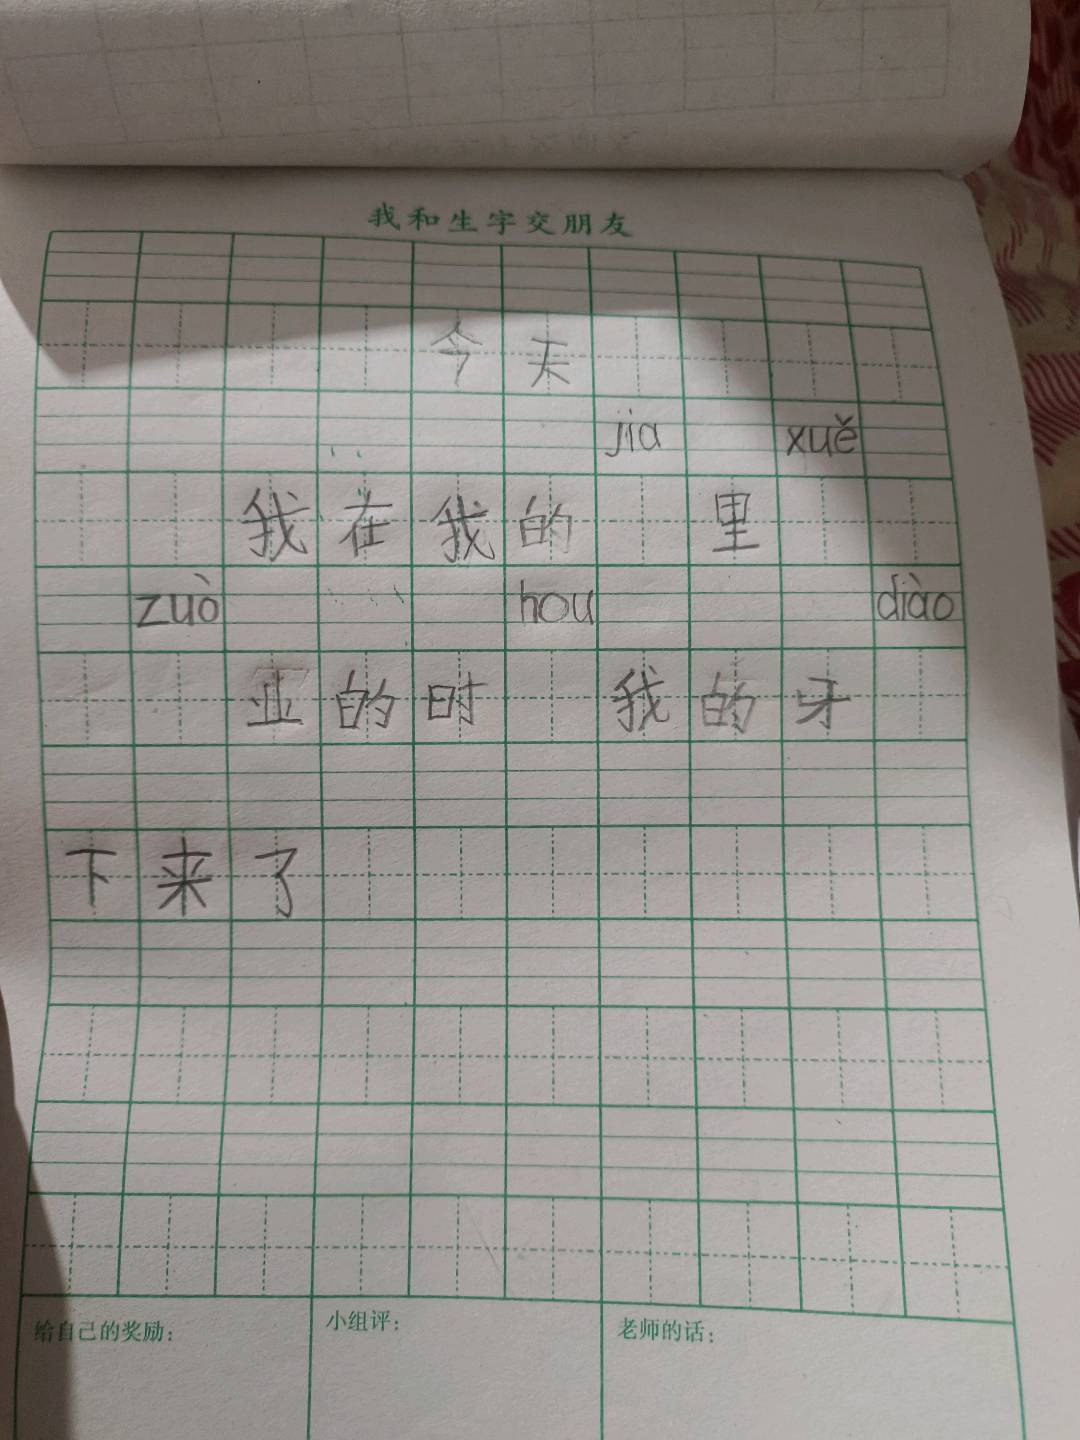 我和生字交朋友
今天
jia xuě
我在我的 里
zuò hou diào
业的时 我的牙
下来了
给自己的奖励： 小组评： 老师的话：